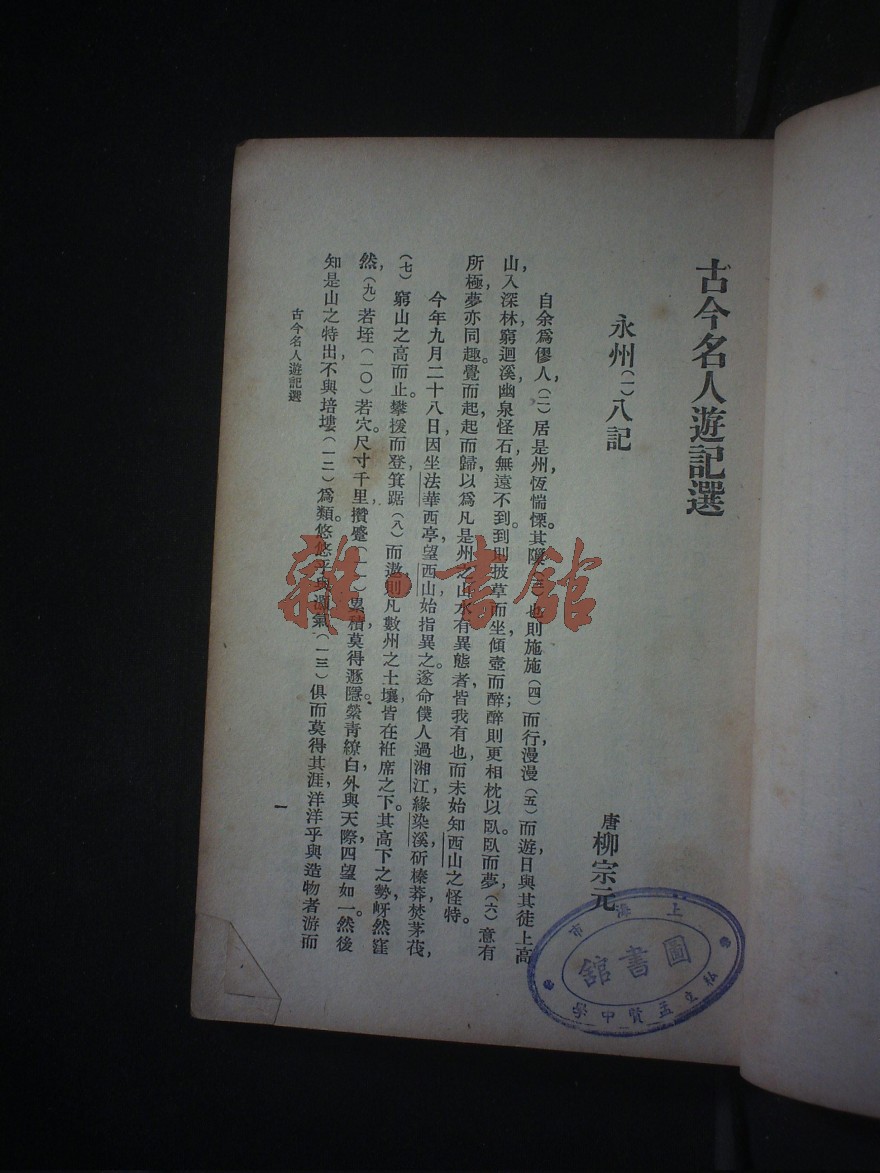 古今名人遊記選
永州(一)八記
唐 柳宗元
自余爲僇人(二)居是州,恆惴慄。其隟(三)也,則施施(四)而行,漫漫(五)而遊,日與其徒上高
山,入深林,窮迴溪,幽泉怪石,無遠不到。到則披草而坐,傾壺而醉;醉則更相枕以臥。臥而夢,(六)意有
所極,夢亦同趣。覺而起,起而歸,以爲凡是州之山水有異態者,皆我有也,而未始知西山之怪特。
今年九月二十八日,因坐法華西亭,望西山,始指異之。遂命僕人過湘江,緣染溪,斫榛莽,焚茅茷,
(七)窮山之高而止。攀援而登,箕踞(八)而遨,則凡數州之土壤,皆在衽席之下。其高下之勢,岈然窪
然,(九)若垤(一〇)若穴。尺寸千里,攢蹙(一一)累積,莫得遯隱。縈青繚白,外與天際,四望如一。然後
知是山之特出,不與培塿(一二)爲類。悠悠乎與灝氣(一三)俱,而莫得其涯,洋洋乎與造物者游,而
古今名人遊記選
一
上海市
圖書館
私立孟賢中學
雜·書館